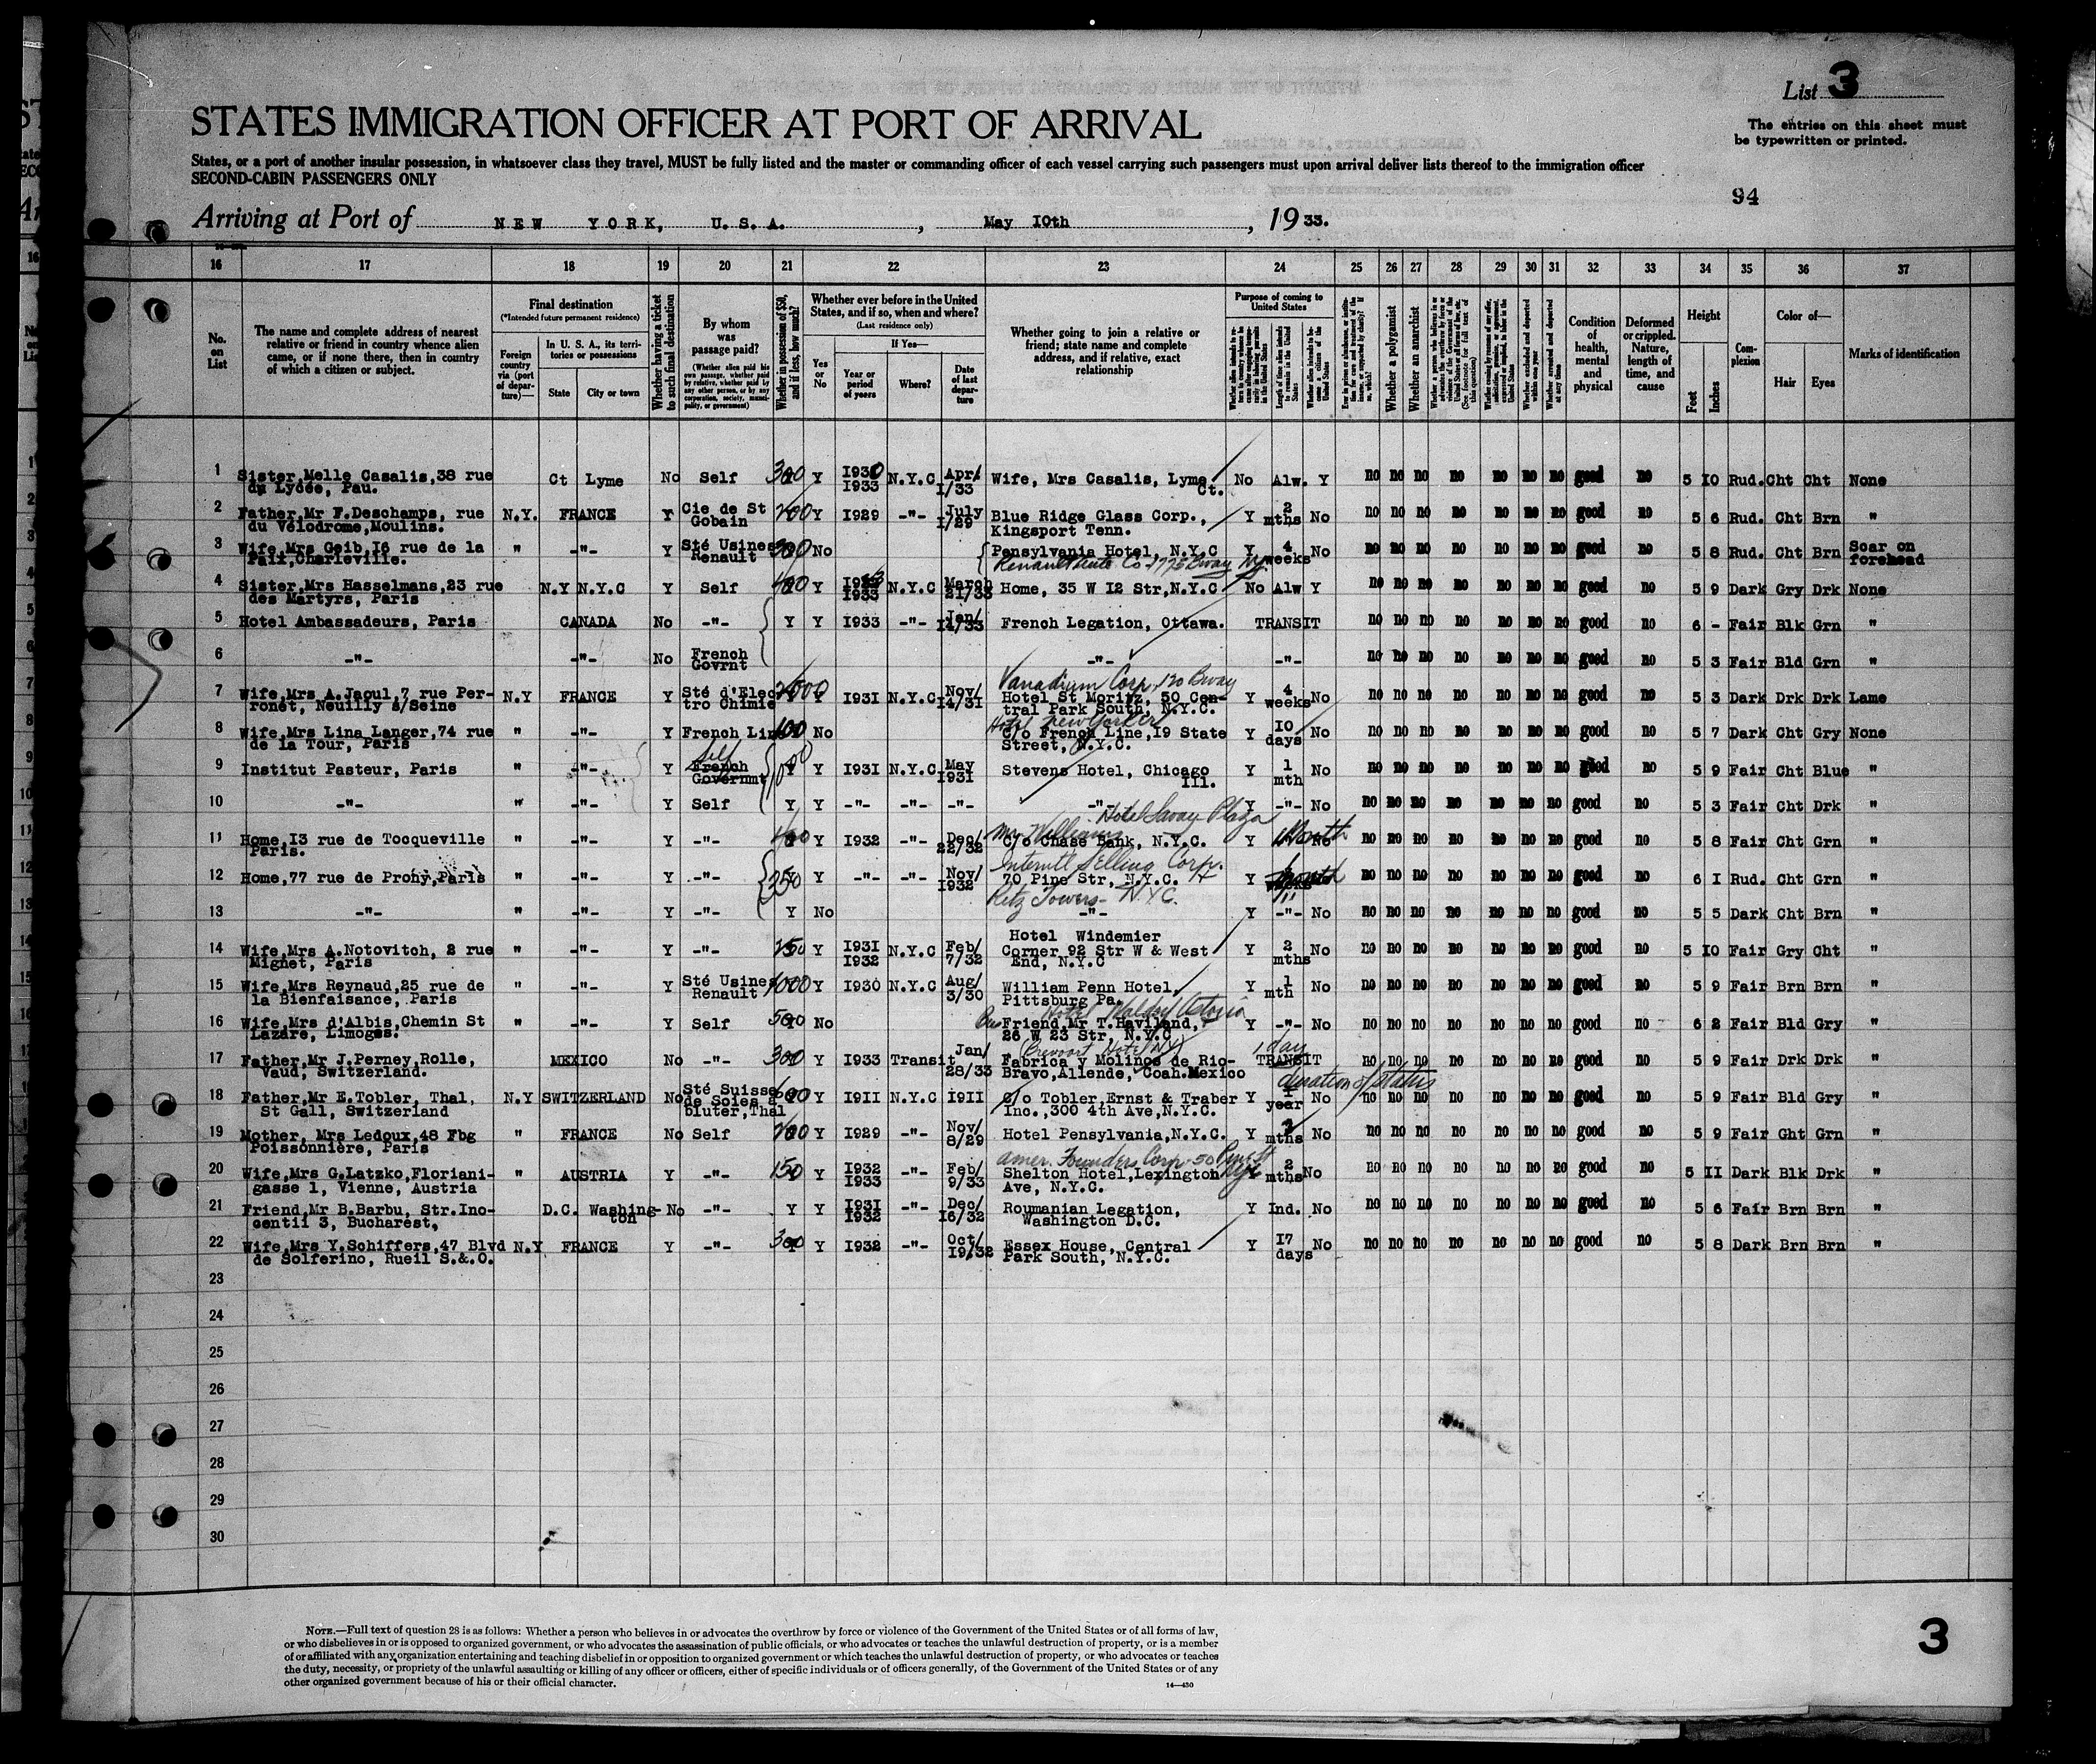 List 3
STATES IMMIGRATION OFFICER AT PORT OF ARRIVAL
The entries on this sheet must
be typewritten or printed.
States, or a port of another insular possession, in whatsoever class they travel, MUST be fully listed and the master or commanding officer of each vessel carrying such passengers must upon arrival deliver lists thereof to the immigration officer
SECOND-CABIN PASSENGERS ONLY
94
Arriving at Port of NEW YORK, U.S.A. , May 10th , 19 33.
16 17 18 19 20 21 22 23 24 25 26 27 28 29 30 31 32 33 34 35 36 37
No. on List
The name and complete address of nearest relative or friend in country whence alien came, or if none there, then in country of which a citizen or subject.
Final destination
(*Intended future permanent residence)
Foreign country via (port of departure)—
In U. S. A., its territories or possessions
State
City or town
Whether having a ticket to such final destination
By whom was passage paid?
(Whether alien paid his own passage, whether paid by relative, whether paid by any other person, or by any corporation, society, municipality, or government)
Whether in possession of $50, and if less, how much?
Whether ever before in the United States, and if so, when and where?
(Last residence only)
Yes or No
If Yes—
Year or period of years
Where?
Date of last departure
Whether going to join a relative or friend; state name and complete address, and if relative, exact relationship
Purpose of coming to United States
Length of time alien intends to remain in the United States
Whether a polygamist
Whether an anarchist
Condition of health, mental and physical
Deformed or crippled. Nature, length of time, and cause
Height
Feet
Inches
Complexion
Color of—
Hair
Eyes
Marks of identification
1 Sister,Melle Casalis,38 rue Ct Lyme No Self 300 Y 1930 N.Y.C Apr/ Wife, Mrs Casalis, Lyme No Alw. Y no no no no no no no good no 5 10 Rud. Cht Cht None
du Lycée, Pau. 1933 1/33 Ct.
2 Father,Mr F.Deschamps, rue N.Y. FRANCE Y Cie de St 200 Y 1929 -"- July Blue Ridge Glass Corp., Y 2 No no no no no no no no good no 5 6 Rud. Cht Brn "
du Vélodrome,Moulins. Gobain 1/29 Kingsport Tenn. mths
3 Wife,Mrs Geib,16 rue de la " -"- Y Sté Usines 300 No Pensylvania Hotel, N.Y.C Y 4 No no no no no no no no good no 5 8 Rud. Cht Brn Scar on
Paix,Charleville. Renault Renault Auto Co 1775 Bway NY weeks forehead
4 Sister,Mrs Hasselmans,23 rue N.Y N.Y.C Y Self 400 Y 1923 N.Y.C March Home, 35 W 12 Str,N.Y.C No Alw Y no no no no no no no good no 5 9 Dark Gry Drk None
des Martyrs, Paris 1933 21/33
5 Hotel Ambassadeurs, Paris CANADA No -"- Y Y 1933 -"- Jan/ French Legation, Ottawa. TRANSIT no no no no no no no good no 6 - Fair Blk Grn "
11/33
6 -"- -"- No French -"- -"- no no no no no no no good no 5 3 Fair Bld Grn "
Govrnt
Vanadium Corp, 120 Bway
7 Wife,Mrs A.Jaoul,7 rue Per- N.Y FRANCE Y Sté d'Elec 2500 Y 1931 N.Y.C Nov/ Hotel St Moritz, 50 Cen- Y 4 No no no no no no no no good no 5 3 Dark Drk Drk Lame
ronet, Neuilly s/Seine tro Chimie 14/31 tral Park South, N.Y.C. weeks
Hotel New Yorker
8 Wife,Mrs Lina Langer,74 rue " -"- Y French Line 100 No C/o French Line,19 State Y 10 No no no no no no no no good no 5 7 Dark Cht Gry None
de la Tour, Paris Street, N.Y.C. days
Self
9 Institut Pasteur, Paris " -"- Y French 1000 Y 1931 N.Y.C May Stevens Hotel, Chicago Y 1 No no no no no no no no good no 5 9 Fair Cht Blue "
Governmt 1931 Ill. mth
10 -"- " -"- Y Self Y Y -"- -"- -"- -"- Y -"- No no no no no no no no good no 5 3 Fair Cht Drk "
Hotel Savoy Plaza
Mr Williams
11 Home,13 rue de Tocqueville " -"- Y -"- 400 Y 1932 -"- Dec/ C/o Chase Bank, N.Y.C. Y Month No no no no no no no no good no 5 8 Fair Cht Grn "
Paris. 22/32
Interntl Selling Corp.
12 Home,77 rue de Prony,Paris " -"- Y -"- 250 Y -"- -"- Nov/ 70 Pine Str, N.Y.C. Y 1 month no no no no no no no good no 6 1 Rud. Cht Grn "
1932 Ritz Towers- N.Y.C.
13 -"- " -"- Y -"- Y No -"- Y -"- No no no no no no no no good no 5 5 Dark Cht Brn "
Hotel Windemier
14 Wife,Mrs A.Notovitch, 2 rue " -"- Y -"- 250 Y 1931 N.Y.C Feb/ Corner 92 Str W & West Y 2 No no no no no no no no good no 5 10 Fair Gry Cht "
Mignet, Paris 1932 7/32 End, N.Y.C mths
15 Wife,Mrs Reynaud,25 rue de " -"- Y Sté Usines 1000 Y 1930 N.Y.C Aug/ William Penn Hotel, Y 1 No no no no no no no no good no 5 9 Fair Brn Brn "
la Bienfaisance, Paris Renault 3/30 Pittsburg Pa. mth
Hotel Waldorf Astoria
16 Wife,Mrs d'Albis,Chemin St " -"- Y Self 500 No Bus Friend,Mr T.Haviland, Y -"- No no no no no no no no good no 6 2 Fair Bld Gry "
Lazare, Limoges. 26 W 23 Str, N.Y.C
(Brevoort Hotel NY) 1 day
17 Father,Mr J.Perney,Rolle, MEXICO No -"- 300 Y 1933 Transit Jan/ Fabrica y Molinos de Rio- TRANSIT no no no no no no no good no 5 9 Fair Drk Drk "
Vaud, Switzerland. 28/33 Bravo,Allende, Coah.Mexico
duration of status
18 Father,Mr E.Tobler, Thal, N.Y SWITZERLAND No Sté Suisse 600 Y 1911 N.Y.C 1911 C/o Tobler,Ernst & Traber Y 1 No no no no no no no no good no 5 9 Fair Bld Gry "
St Gall, Switzerland de Soies à bluter,Thal Inc.,300 4th Ave,N.Y.C. year
19 Mother, Mrs Ledoux,48 Fbg " FRANCE No Self 200 Y 1929 -"- Nov/ Hotel Pensylvania,N.Y.C. Y mths No no no no no no no no good no 5 9 Fair Ght Grn "
Poissonnière, Paris 8/29
Amer. Founders Corp-50 Pine St
20 Wife,Mrs G.Latzko,Floriani- " AUSTRIA Y -"- 150 Y 1932 -"- Feb/ Shelton Hotel,Lexington Y 2 No no no no no no no no good no 5 11 Dark Blk Drk "
gasse 1, Vienne, Austria 1933 9/33 Ave, N.Y.C. mths
21 Friend,Mr B.Barbu, Str.Ino- D.C. Washing- No -"- Y Y 1931 -"- Dec/ Roumanian Legation, Y Ind. No no no no no no no no good no 5 6 Fair Brn Brn "
centii 3, Bucharest, ton 1932 16/32 Washington D.C.
22 Wife,Mrs Y.Schiffers,47 Blvd N.Y FRANCE Y -"- 300 Y 1932 -"- Oct/ Essex House, Central Y 17 No no no no no no no no good no 5 8 Dark Brn Brn "
de Solferino, Rueil S.&.O. 19/32 Park South, N.Y.C. days
23
24
25
26
27
28
29
30
NOTE.—Full text of question 28 is as follows: Whether a person who believes in or advocates the overthrow by force or violence of the Government of the United States or of all forms of law,
or who disbelieves in or is opposed to organized government, or who advocates the assassination of public officials, or who advocates or teaches the unlawful destruction of property, or is a member
of or affiliated with any organization entertaining and teaching disbelief in or opposition to organized government or which teaches the unlawful destruction of property, or who advocates or teaches
the duty, necessity, or propriety of the unlawful assaulting or killing of any officer or officers, either of specific individuals or of officers generally, of the Government of the United States or of any
other organized government because of his or their official character.
14—430
3